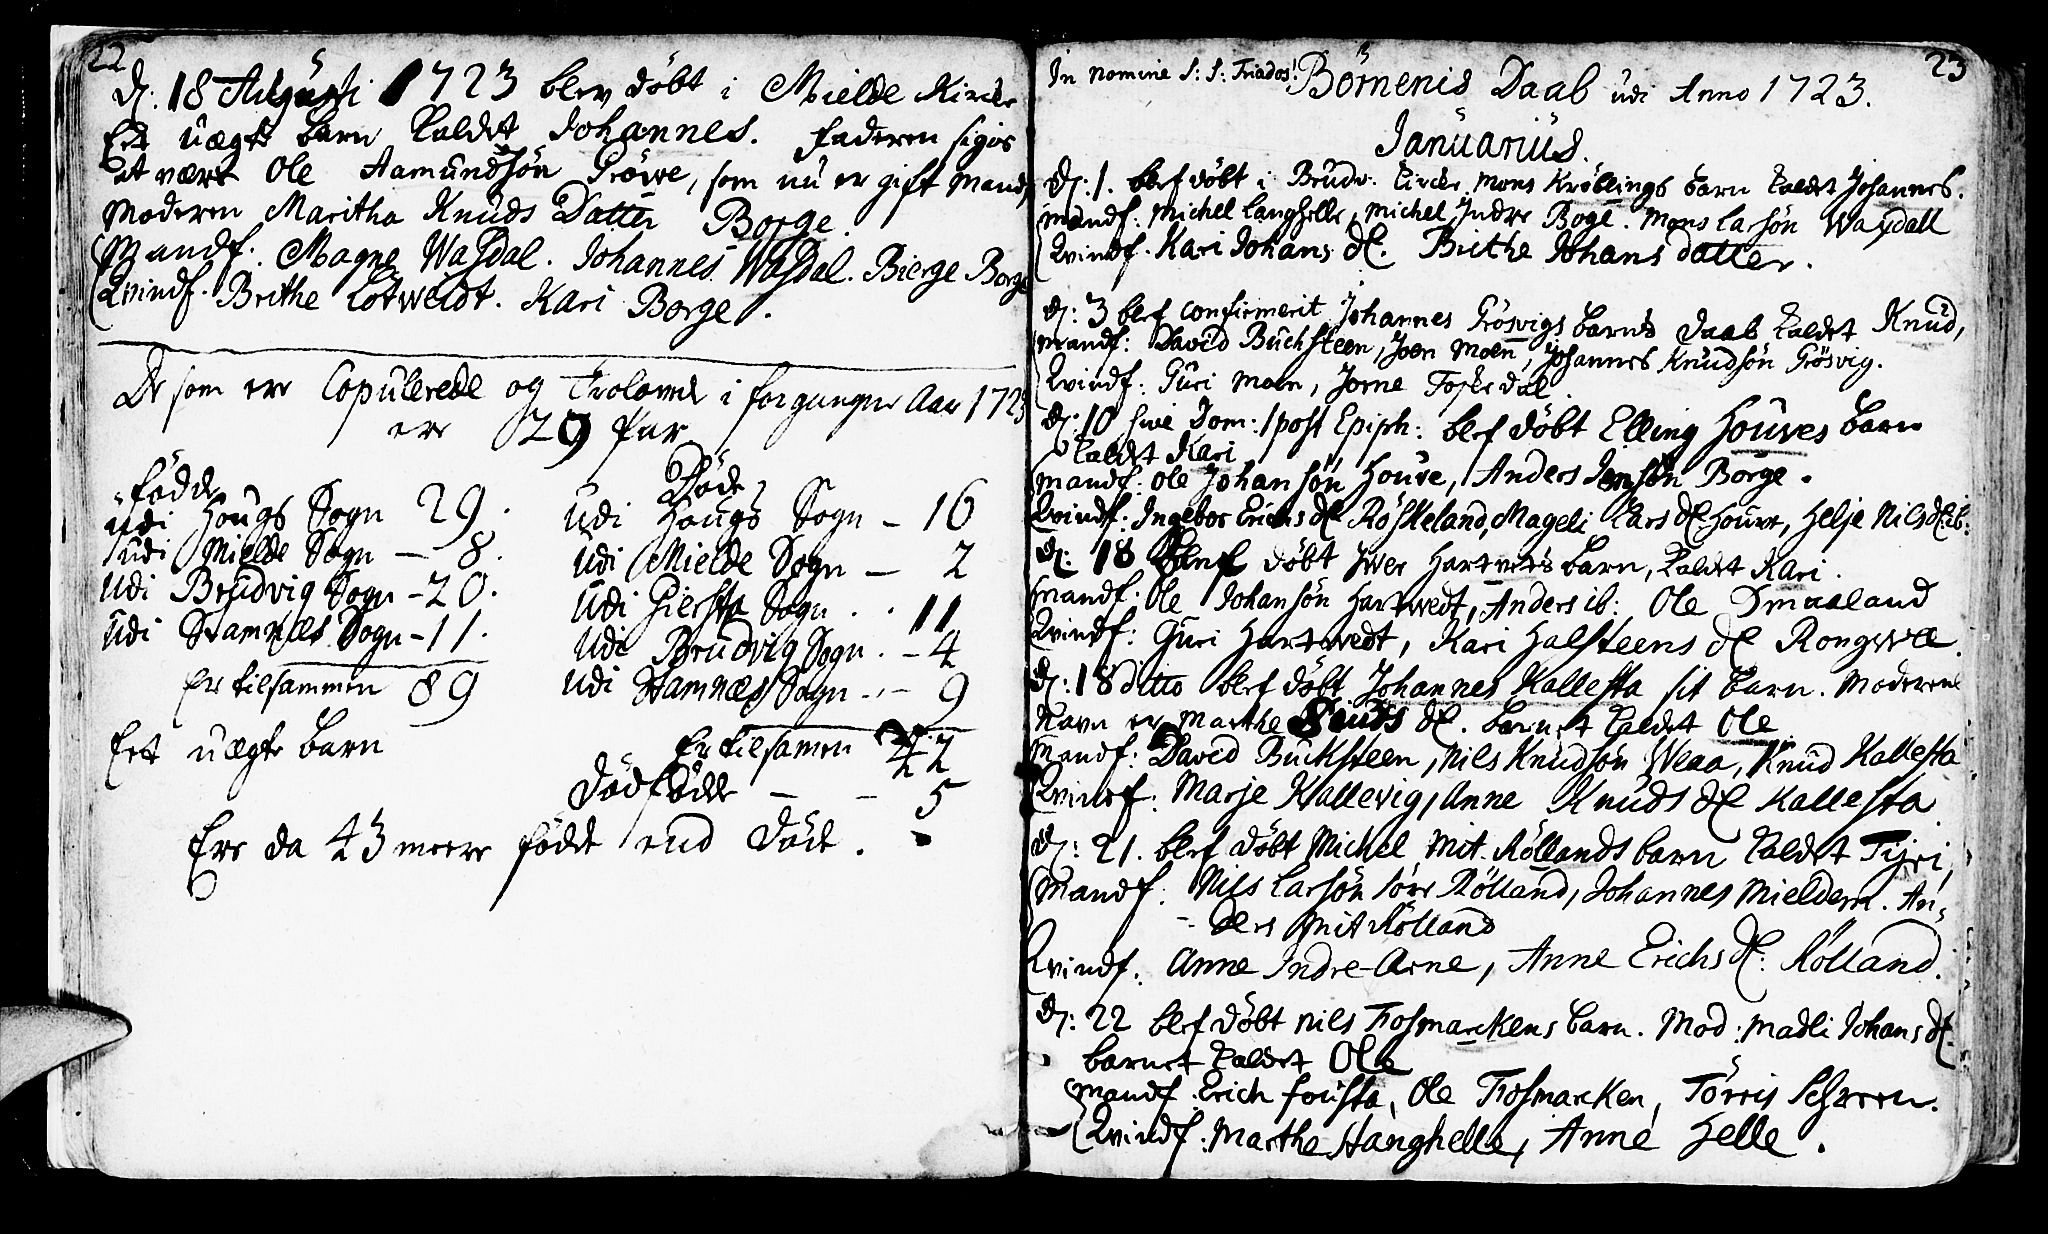 22
d: 18 Augusti 1723 blev döbt i Mielde Kircke
Eet uægte barn kaldet Johannes. faderen siges
at være Ole Aamundsön Gröwe, som nu er gift mand,
Moderen Maritha Knuds Datter Borge.
Mandf: Magne Wasdal. Johannes Wasdal. Bierge Borge
Qvindf. Brithe Lotweidt. Kari Borge.
De som ere Copulerede og Trolovede i forgangne Aar 1723
ere 29 Par
födde
udi Hougs Sogn 29.
udi Mielde Sogn — 8.
udi Brudvig Sogn - 20.
udi Stamnes Sogn - 11.
Er tilsammen 89
Eet uægte barn
Döde
udi Hougs Sogn — 16
udi Mielde Sogn — 2
udi Giersta Sogn . . 11
udi Brudvig Sogn . - 4
udi Stamnæs Sogn . - 9
Er tilsamen 42
Dödfödde — — 5
Ere da 43 meere födde end döde.
23
In Nomine S: S: Triados! Börnenis Daab udi Anno 1723.
Januarius.
d: 1. blef döbt i Brudv: Kircke Mons Kröllings barn kaldet Johannes.
Mandf: Michel Langhelle, Michel Indre Boge. Mons Larsön Wasdall
Qvindf. Kari Johans dt. Brithe Johans datter.
d: 3 blef confirmerit Johannes Grösvigs barns daab kaldet Knud,
Mandf: David Buchsteen, Joen Moen, Johannes Knudsön Grösvig.
Qvindf: Guri Moen, Jorne Toskedal.
d: 10 sive Dom: 1 post Epiph: blef döbt Elling Houves barn
kaldet Kari
Mandf: Ole Johansön Houve, Anders Jensön Borge.
Qvindf: Ingebor Erichs dt Röskeland, Mageli Lars dt Houve, Helje Nils dt ib:
d: 18 blef döbt Iver Hartvets barn, kaldet Kari.
Mandf. Ole Johansön Hartwedt, Anders ib: Ole Smaaland
Qvindf: Guri Hartwedt, Kari Halsteens dt Rongwe.
d: 18 ditto blef döbt Johannes Kallesta sit barn. Moderens
Navn er Marthe dt. barnet kaldet Ole
Mandf: David Bucksteen, Nils Knudsön Weaa, Knud Kallesta
Qvindf: Marje Kallevig, Anne Knuds dt Kallesta
d: 21. blef döbt Michel Mit-Röllands barn kaldet Tyri,
Mandf: Nils Larsön söre Rölland, Johannes Mieldem. An-
- ders Mit Rölland
Qvindf. Anne Indre-Arne, Anne Erichs dt: Rölland.
d: 22 blef döbt Nils Trosmarckens barn. Mod: Madli Johans dt.
barnet kaldet Ole
Mandf. Erich fousta, Ole Trosmarcken, Törris
Qvindf: Marthe Hanghelle, Anne Helle.